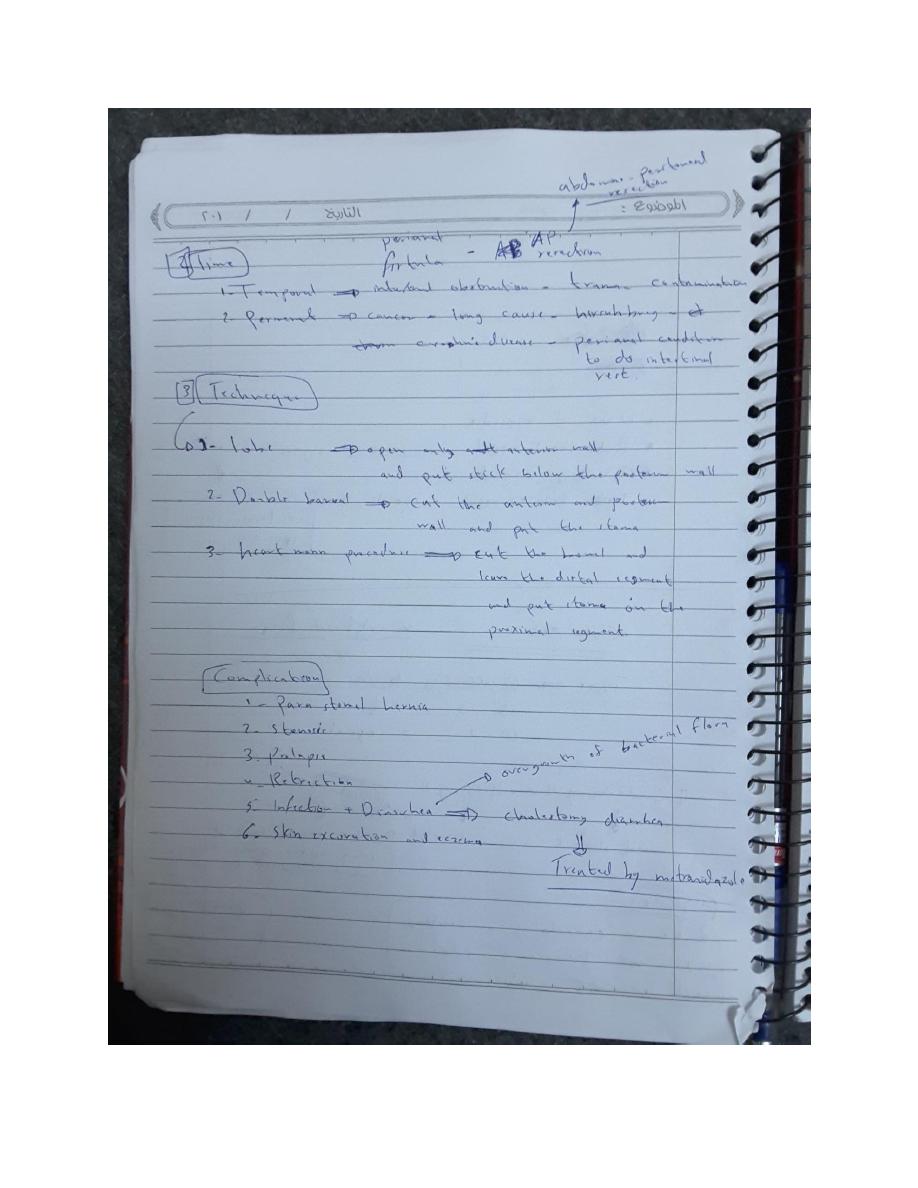 abdomino - peritoneal
resection
الموضوع :
التاريخ / / ٢٠١
perianal
fistula - AP resection
2 time
1- Temporal ⇒ intestinal obstruction - trauma - contamination
2- Perment ⇒ cancer - long cause - hirschbrug -
crohn's disease - perianal condition
to do intestinal
rest.
3 Technique
1- lobe ⇒ open only anterior wall
and put stick below the posterior wall
2- Double barreal ⇒ cut the anterior and posterior
wall and put the stoma
3- heart mann procedure ⇒ cut the bowel and
leave the distal segment
and put stoma on the
proximal segment.
Complication
1- Para stomal hernia
2- Stenosis
3. Prolapse
4- Retriction
5- Infection + Diarrhea ⇒ cholestomy diarrhea
overgrowth of bacterial flora
6- Skin excoration and eczema
Treated by metronidazole